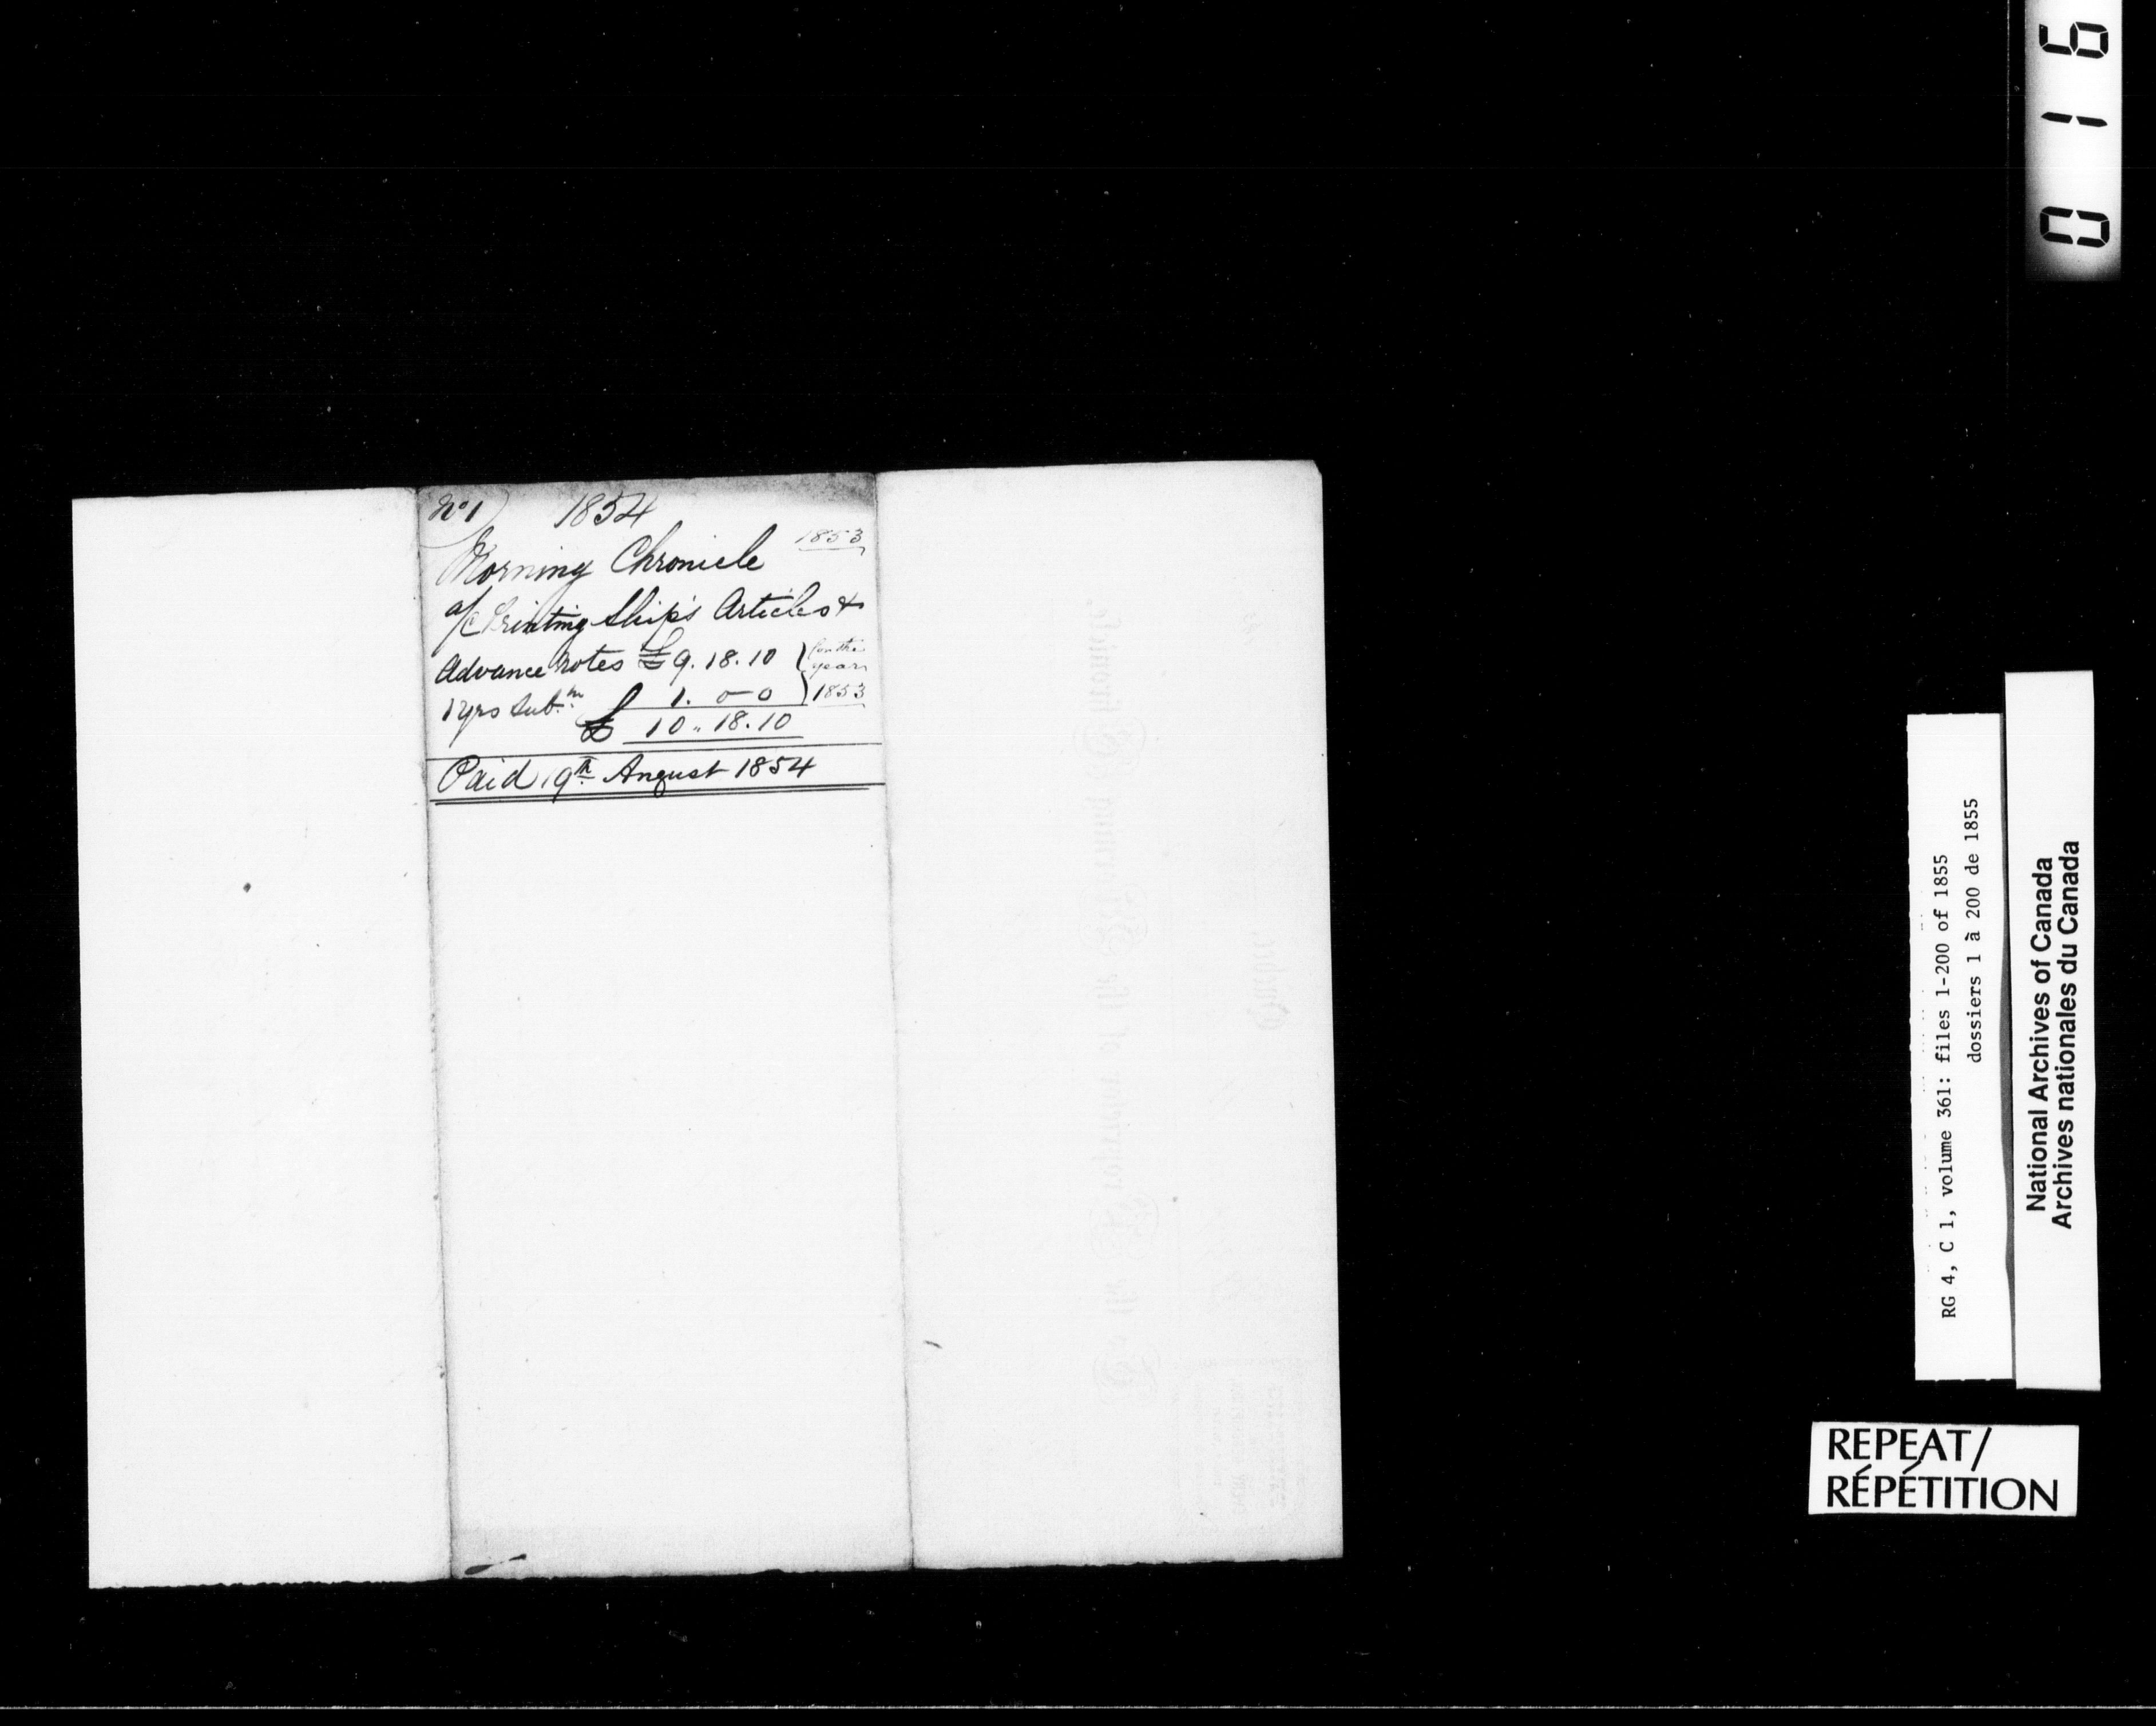 No 1) 1854
1853
Morning Chronicle
a/c Printing Ship's Articles &
Advance notes £9.18.10 } for the year 1853
1 yrs Subn. £ 1. 0 - 0
£ 10 " 18.10
Paid 19th August 1854
To the Proprietor of the Morning Chronicle,
Quebec,
0 1 6
RG 4, C 1, volume 361: files 1-200 of 1855
dossiers 1 à 200 de 1855
National Archives of Canada
Archives nationales du Canada
REPEAT/
RÉPÉTITION